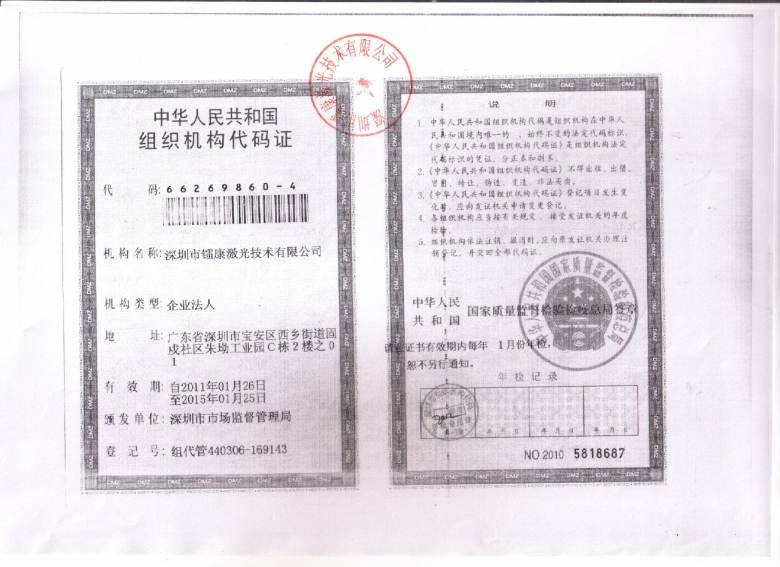 中华人民共和国
组织机构代码证
代 码:66269860-4
机构名称:深圳市镭康激光技术有限公司
机构类型:企业法人
地 址:广东省深圳市宝安区西乡街道固
戍社区朱坳工业园C栋2楼之01
有 效 期:自2011年01月26日
至2015年01月25日
颁发单位:深圳市市场监督管理局
登 记 号:组代管440306-169143
说 明
1. 中华人民共和国组织机构代码是组织机构在中华人
民共和国境内唯一的、始终不变的法定代码标识,
《中华人民共和国组织机构代码证》是组织机构法定
代码标识的凭证,分正本和副本。
2. 《中华人民共和国组织机构代码证》不得出租、出借、
冒用、转让、伪造、变造、非法买卖。
3. 《中华人民共和国组织机构代码证》登记项目发生变
化时,应向发证机关申请变更登记。
4. 各组织机构应当按有关规定,接受发证机关的年度
检验。
5. 组织机构依法注销、撤消时,应向原发证机关办理注
销登记,并交回全部代码证。
中华人民
共和国 国家质量监督检验检疫总局签章
请在证书有效期内每年 1月份年检,
恕不另行通知。
年检记录
年 月 日 年 月 日 年 月 日
NO.2010 5818687